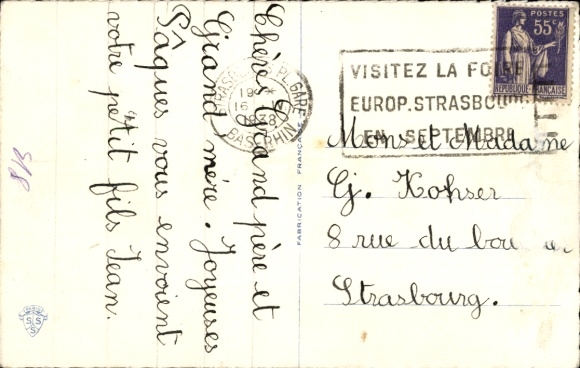 Chères Grand père et
Grand mère. Joyeuses
Pâques vous envoient
votre petit fils Jean.
8/3
FABRICATION FRANÇAISE
STRASBOURG PL. GARE
19
16
1938
BAS RHIN
VISITEZ LA FOIRE
EUROP. STRASBOURG
EN SEPTEMBRE
POSTES
55c
REPUBLIQUE FRANÇAISE
Mons et Madame
Cj. Kohser
8 rue du
Strasbourg.